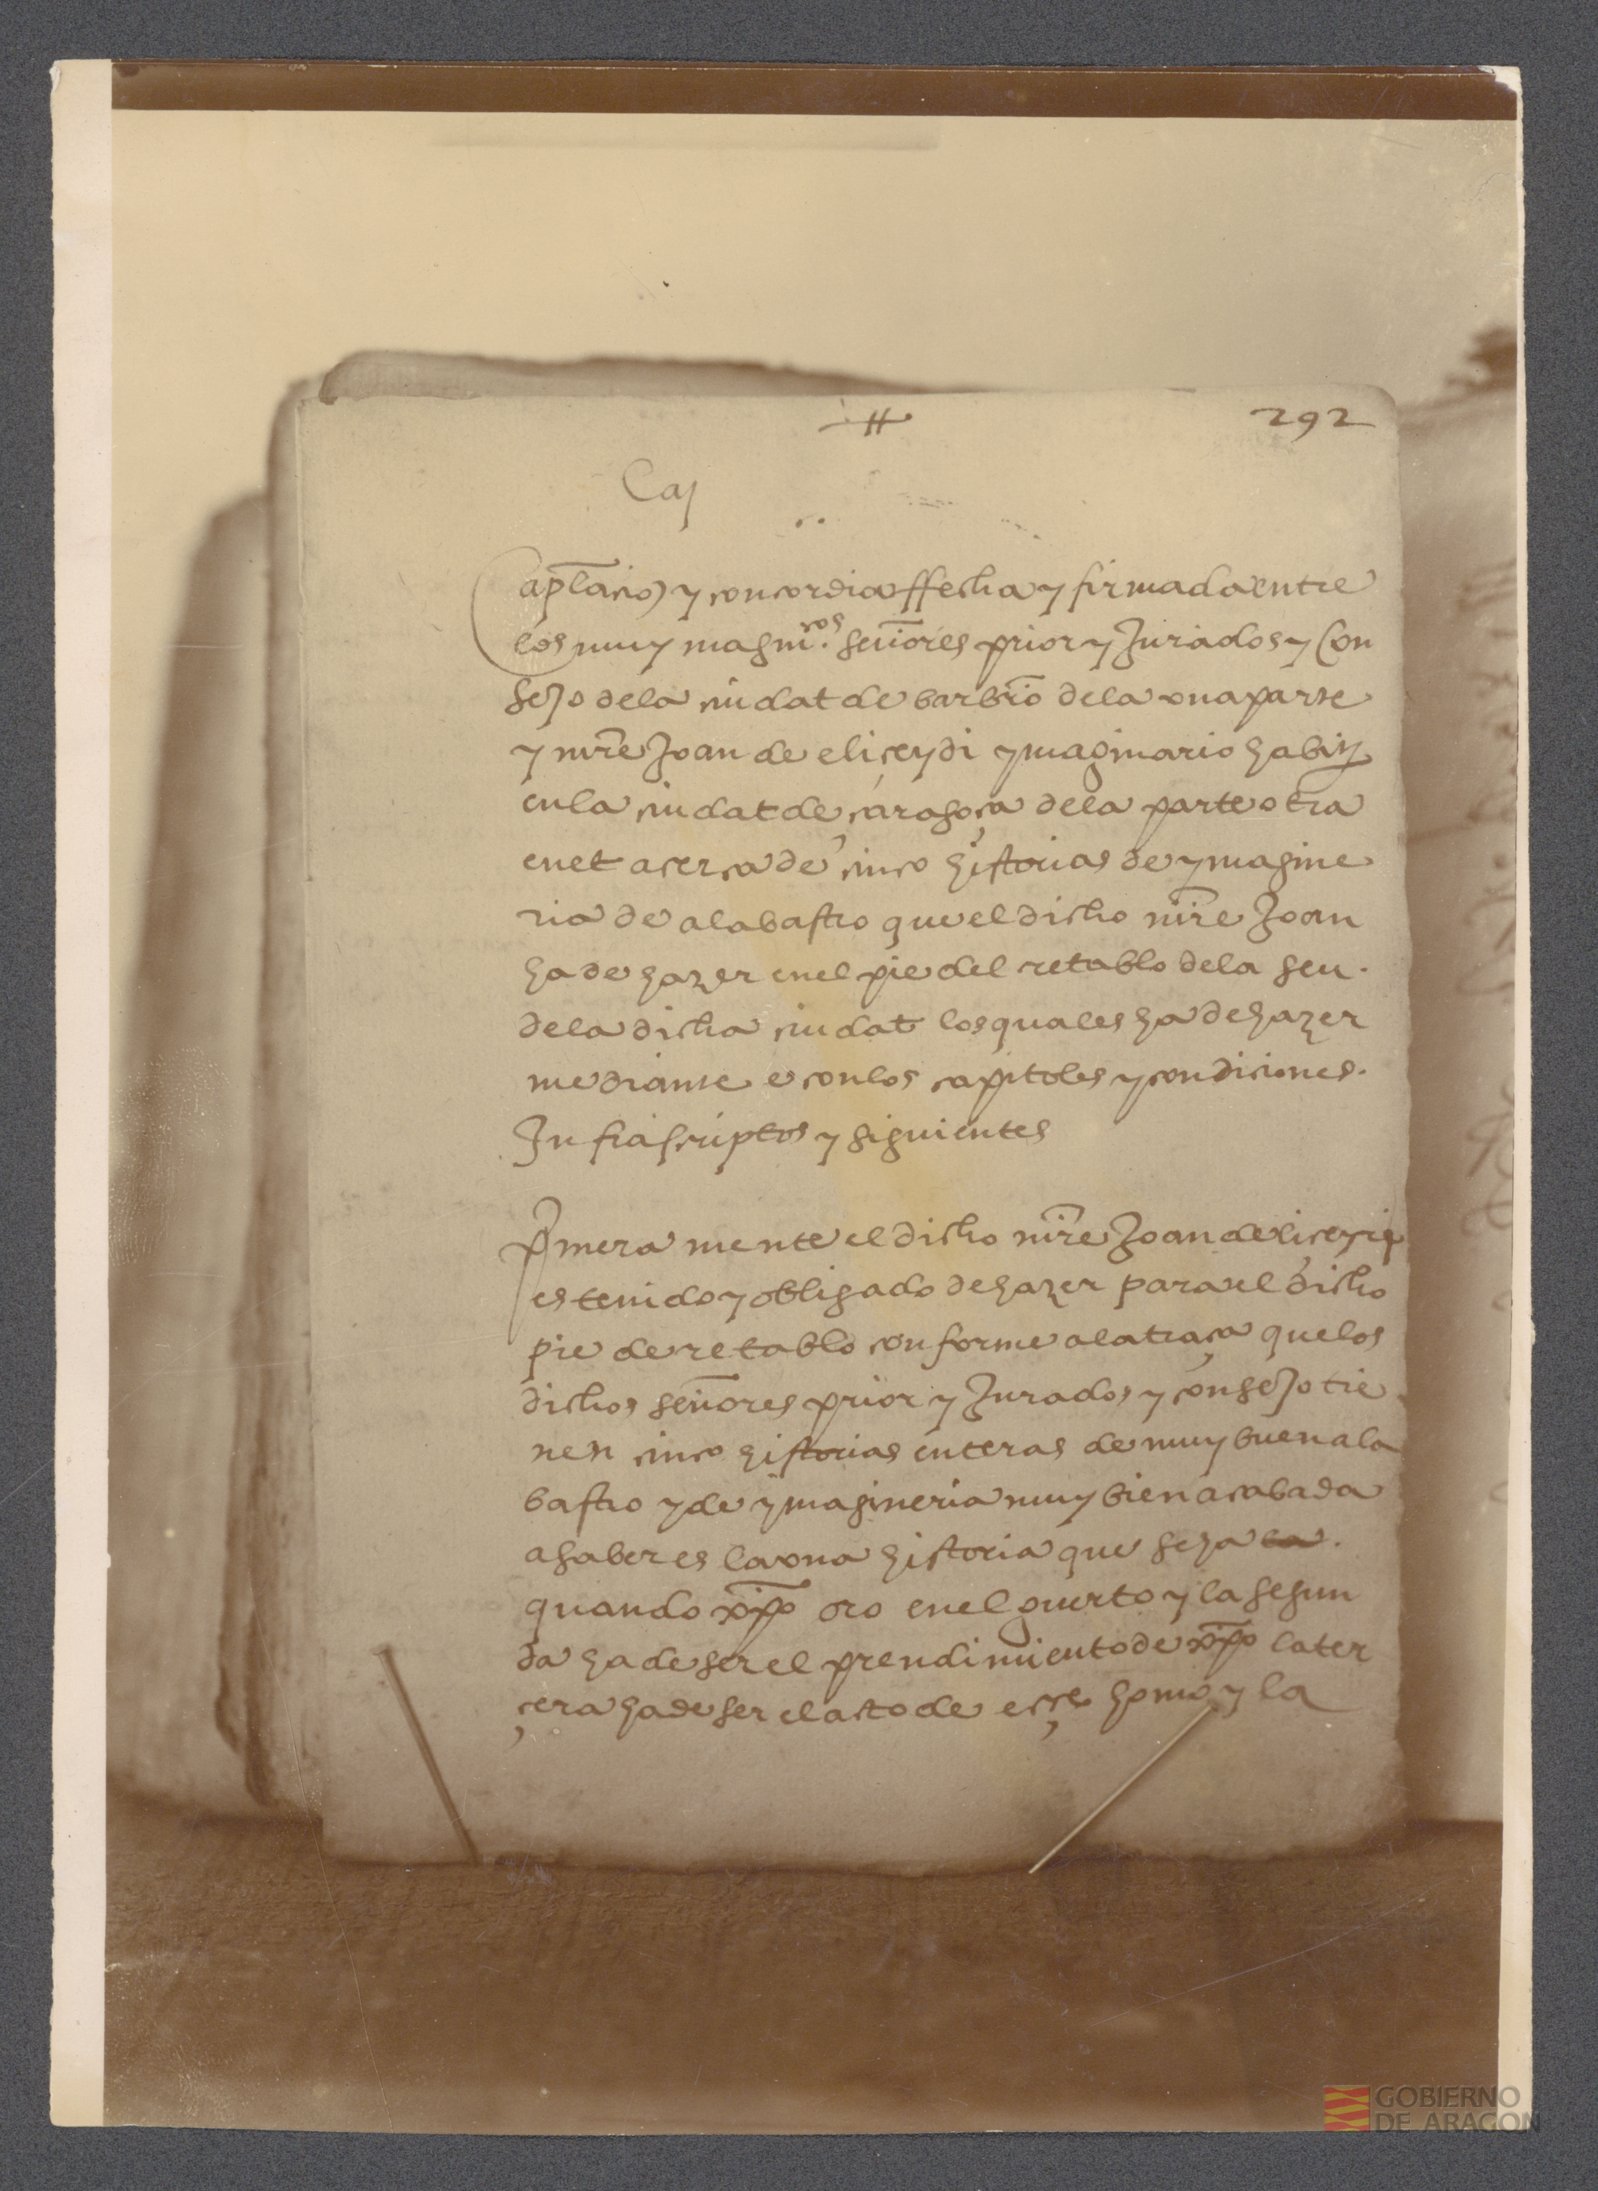 292
Cap
Capl̄acio) y concordia ffecha y firmada entre
los muy magni.cos señores prior y Jurados y Con
sejo dela ciudat de barbr̄o dela vna parte
y mr̄e Joan de eliceydi ymaginario habit
en la ciudat de caragoça dela parte otra
en et acerca de cinco historias de ymagine
ria de alabastro que el dicho mr̄e Joan
ha de hazer en el pie del retablo dela seu.
dela dicha ciudat los quales ha de hazer
mediante e con los capitoles y condiciones.
Infrascriptos y siguientes
P̄mera mente el dicho mr̄e Joan de
es tenido y obligado de hazer para el dicho
pie de retablo conforme a la traça que los
dichos señores prior y Jurados y consejo tie
nen cinco historias enteras de muy buen ala
bastro y de ymagineria muy bien acabada
a saber es la vna historia que seya la.
quando xp̄o oro en el guerto y la segun
da ha de ser el prendimiento de xp̄o la ter
çera ha de ser el acto de ecçe homo y la
GOBIERNO
DE ARAGON